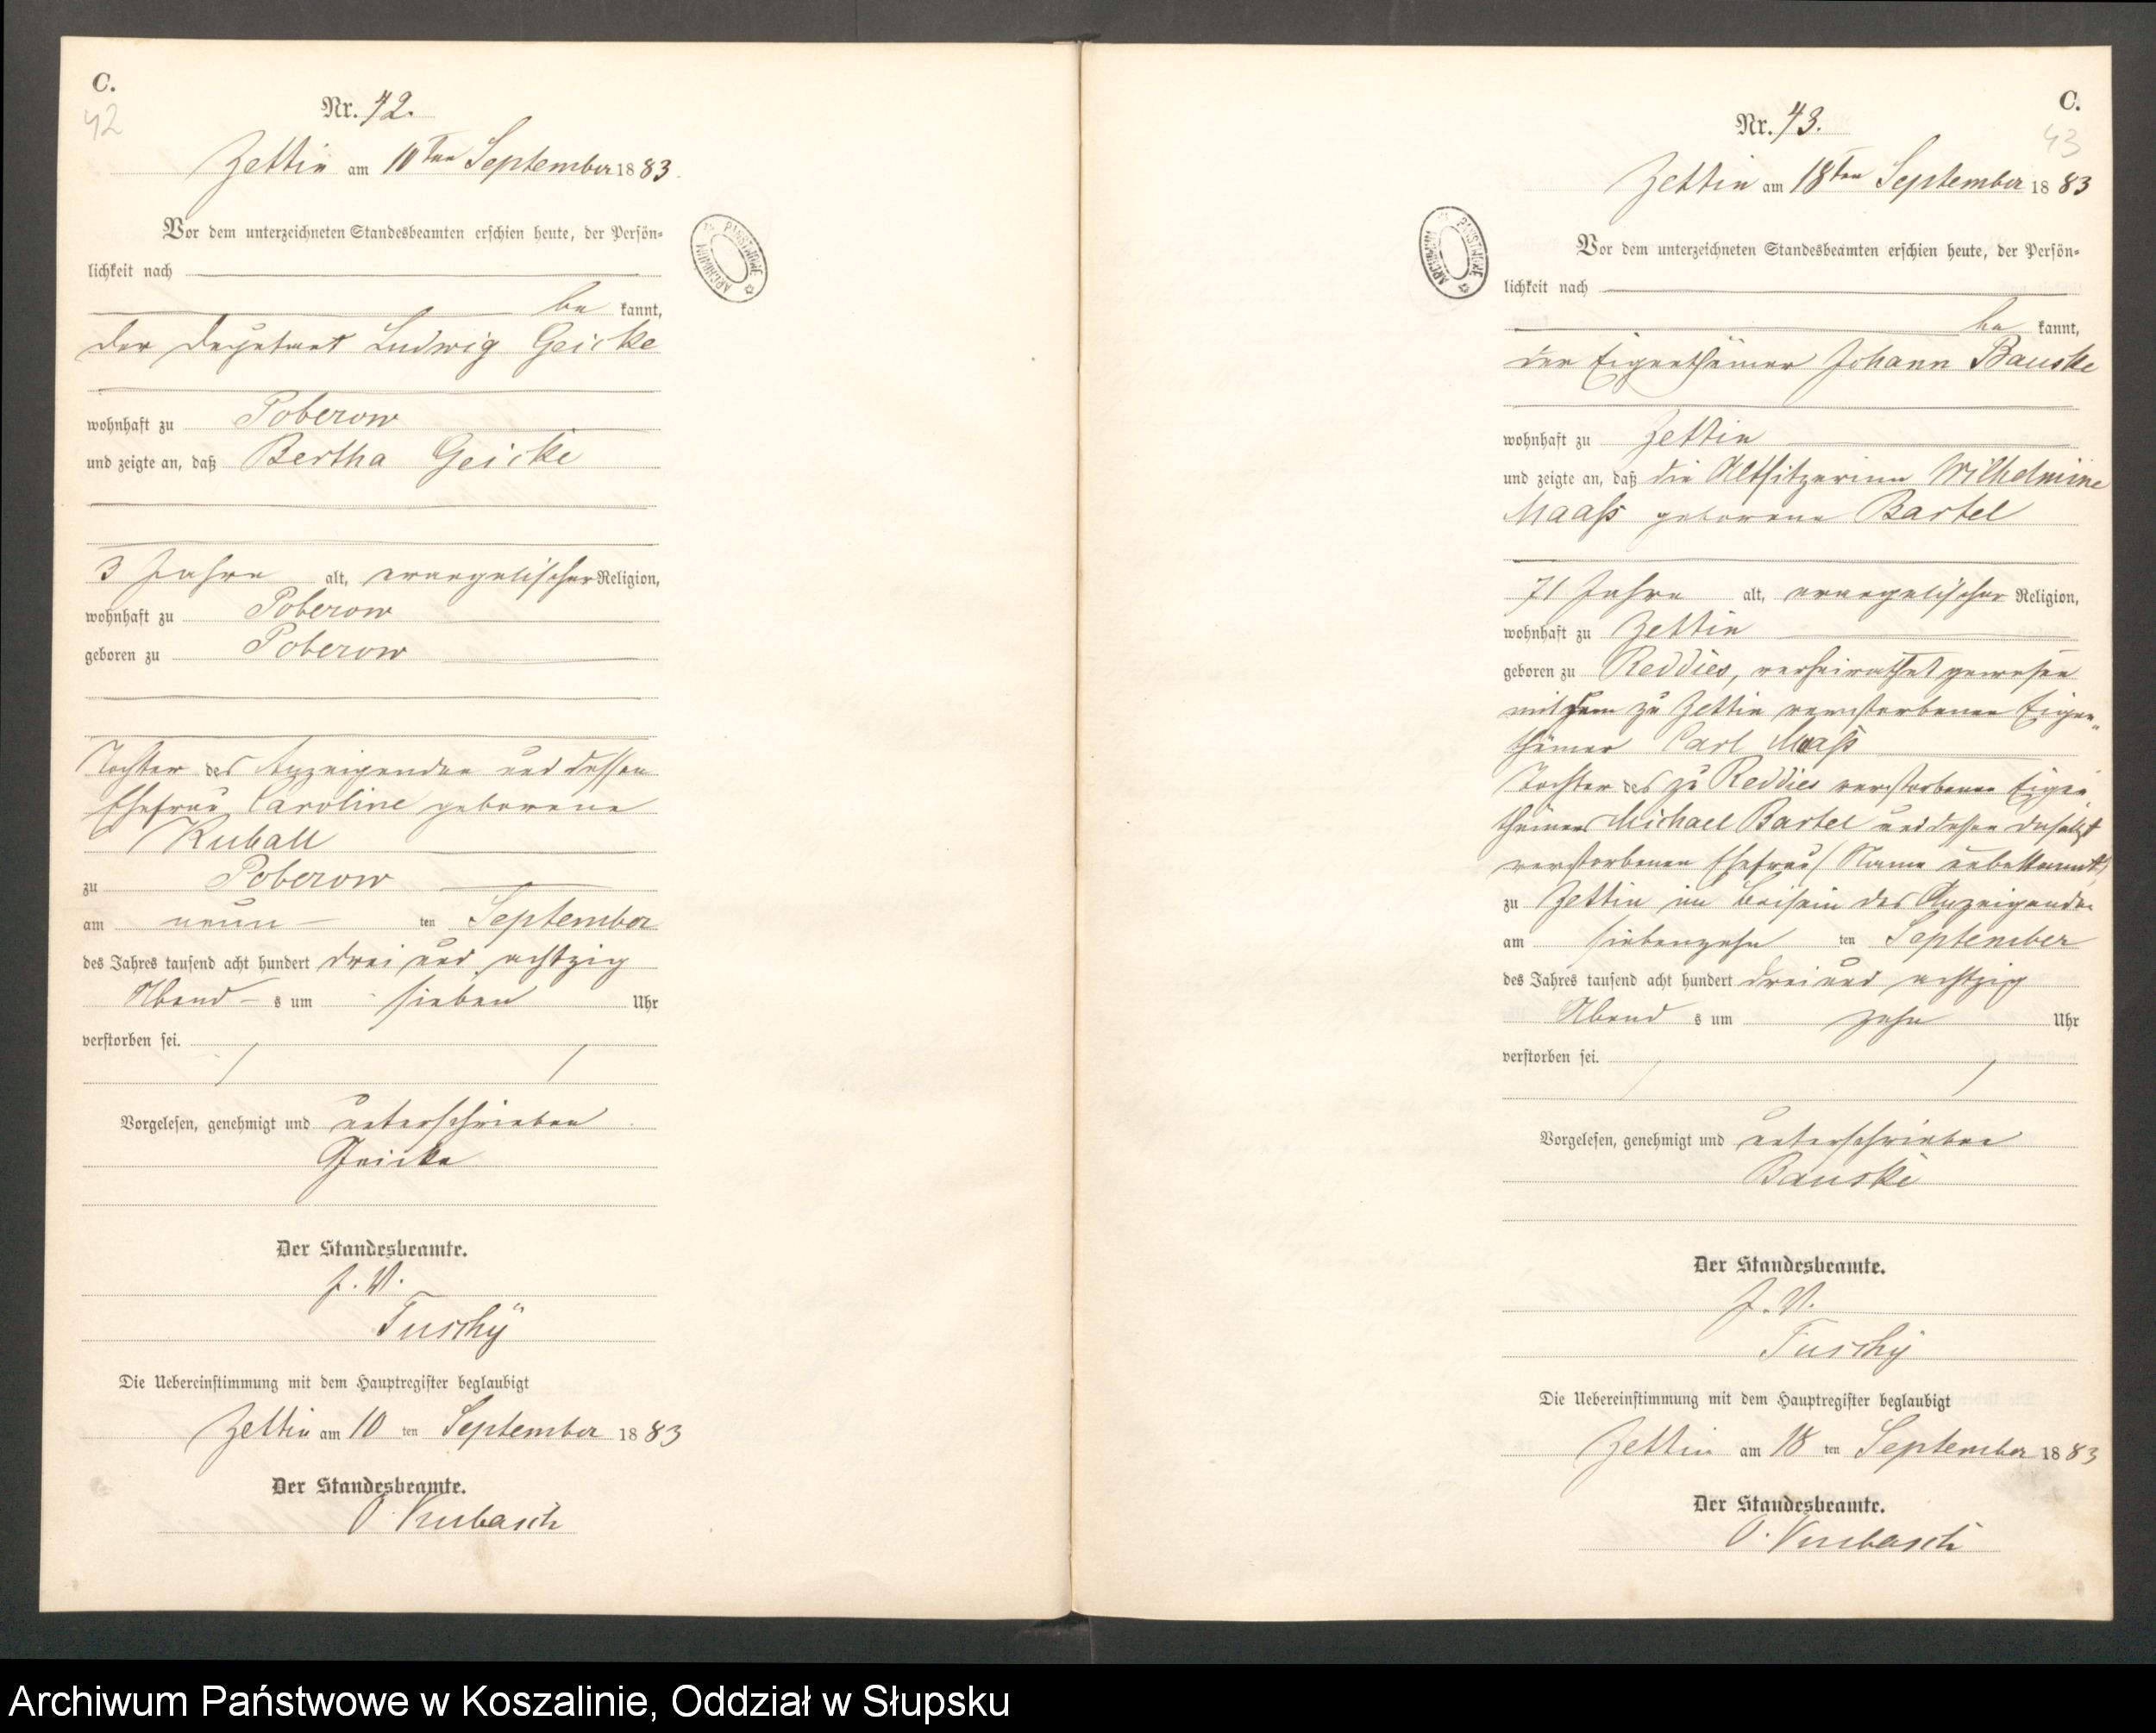 C.
42
Nr. 42.
Zettin am 10ten September 1883.
Vor dem unterzeichneten Standesbeamten erschien heute, der Persön-
lichkeit nach
be kannt,
der Deputant Ludwig Geicke
wohnhaft zu Poberow
und zeigte an, daß Bertha Geicke
3 Jahre alt, evangelischer Religion,
wohnhaft zu Poberow
geboren zu Poberow
Tochter des Anzeigenden und dessen
Ehefrau Caroline geborene
Kuball
zu Poberow
am neun ten September
des Jahres tausend acht hundert drei und achtzig
Abend s um sieben Uhr
verstorben sei.
Vorgelesen, genehmigt und unterschrieben
Geicke
Der Standesbeamte.
J. V.
Tuschy
Die Uebereinstimmung mit dem Hauptregister beglaubigt
Zettin am 10 ten September 1883
Der Standesbeamte.
ARCHIWUM PAŃSTWOWE
C.
43
Nr. 43.
Zettin am 18ten September 1883
Vor dem unterzeichneten Standesbeamten erschien heute, der Persön-
lichkeit nach
be kannt,
der Eigenthümer Johann Bauske
wohnhaft zu Zettin
und zeigte an, daß die Altsitzerinn Wilhelmine
Maaß geborene Bartel
71 Jahre alt, evangelischer Religion,
wohnhaft zu Zettin
geboren zu Reddies, verheirathet gewesen
mit dem zu Zettin verstorbenen Eigen-
thümer Carl Maaß
Tochter des zu Reddies verstorbenen Eigen
thümers Michael Bartel und dessen daselbst
verstorbenen Ehefrau (Name unbekannt)
zu Zettin im Beisein des Anzeigenden
am siebenzehn ten September
des Jahres tausend acht hundert drei und achtzig
Abend s um zehn Uhr
verstorben sei.
Vorgelesen, genehmigt und unterschrieben
Bauske
Der Standesbeamte.
J. V.
Tuschy
Die Uebereinstimmung mit dem Hauptregister beglaubigt
Zettin am 18 ten September 1883
Der Standesbeamte.
ARCHIWUM PAŃSTWOWE
Archiwum Państwowe w Koszalinie, Oddział w Słupsku